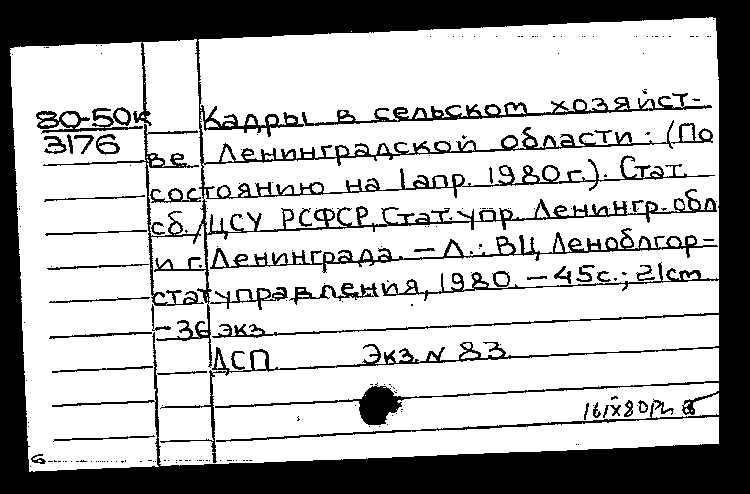 80-50к Кадры в сельском хозяйст-
3176 ве Ленинградской области: (По
состоянию на 1 апр. 1980 г.). Стат.
сб./ЦСУ РСФСР, Стат. упр. Ленингр. обл.
и г. Ленинграда. – Л.: ВЦ Леноблгор-
статуправления, 1980. – 45с.; 21cm
– 36 экз.
ДСП Экз. N 83